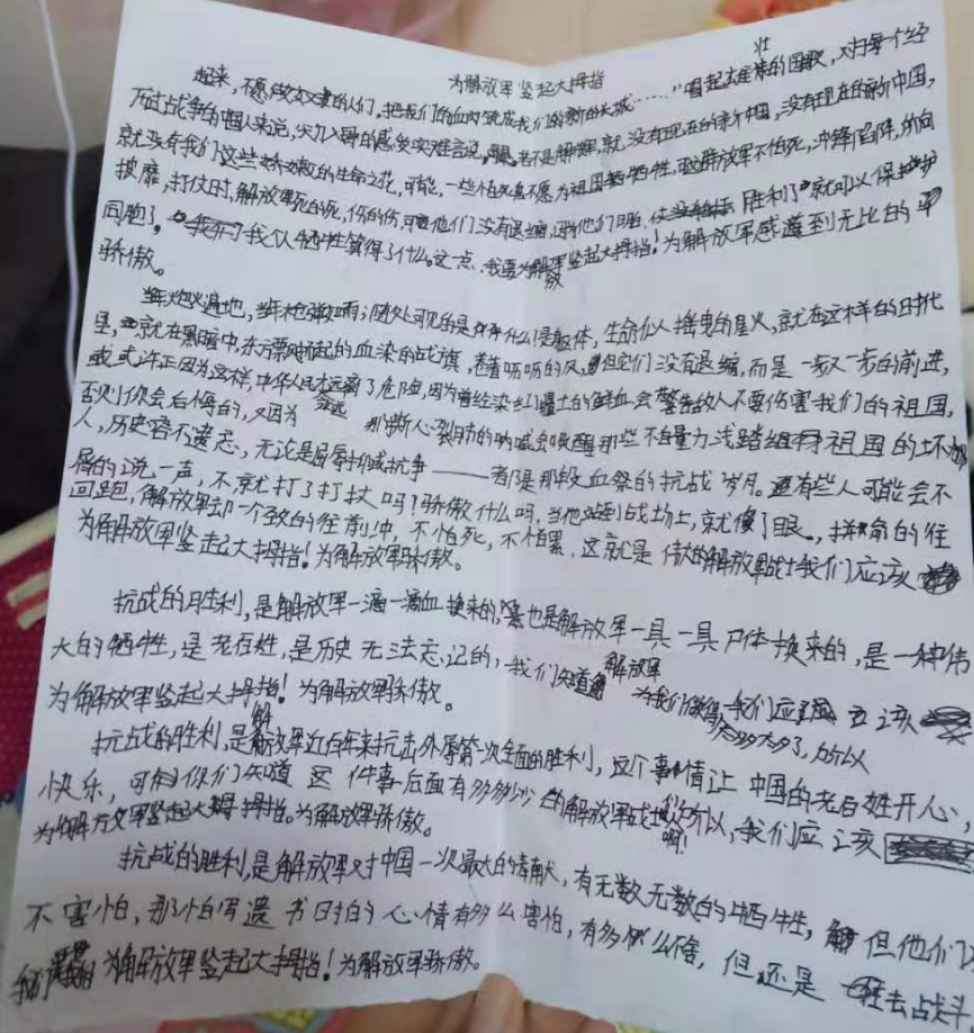 为解放军竖起大拇指
起来,不愿做奴隶的人们,把我们的血肉筑成我们的新的长城……"唱起雄壮的国歌,对每个经
历过战争的中国人来说,感受实难言说,若不是解放军,就没有现在的新中国,没有现在的新中国,
就没有我们这些娇嫩的生命之花,可能,一些怕死不愿为祖国牺牲,解放军不怕死,冲锋陷阵,所向
披靡,打仗时,解放军死的死,伤的伤,他们没有退缩,胜利了就可以保护
同胞了。我们牺牲算得了什么。这一点,我要为解放军竖起大拇指!为解放军感到无比的
骄傲。
当年炮火遍地,当年枪弹如雨;随处可见的是躯体,生命似人摇曳的星火,就在这样的时代
里,就在黑暗中,东方飘起的血染的战旗,卷着呖呖的风,但它们没有退缩,而是一步又一步的前进,
或许正因为这样,中华人民才远离了危险,因为曾经染红疆土的鲜血会警告敌人不要伤害我们的祖国,
否则你会后悔的,又因为那撕心裂肺的呐喊会唤醒那些不自量力浅踏祖国的坏
人,历史容不遗忘,无论是屈辱抑或抗争——都是那段血祭的抗战岁月。还有些人可能会不
屑的说一声,不就打了打仗吗?骄傲什么吗,当他站到战场上,就傻了眼,拼命的往
回跑,解放军却一个致的往前冲,不怕死,不怕累,这就是伟大的解放军战士我们应该
为解放军竖起大拇指!为解放军骄傲。
抗战的胜利,是解放军一滴一滴血换来的,也是解放军一具一具尸体换来的,是一种伟
大的牺牲,是老百姓,是历史无法忘记的,我们知道解放军为我们做得太多太多了,所以我们应该
为解放军竖起大拇指!为解放军骄傲。
抗战的胜利,是解放军近百年来抗击外辱第一次全面的胜利,这个事情让中国的老百姓开心,
快乐,可你们知道这件事后面有多多少少的解放军战士啊!所以,我们应该
为解放军竖起大拇指。为解放军骄傲。
抗战的胜利,是解放军对中国一次最大的贡献,有无数无数的牺牲,但他们
不害怕,那怕写遗书时的心情有多么害怕,有多么不舍,但还是去战斗
我为解放军竖起大拇指!为解放军骄傲。